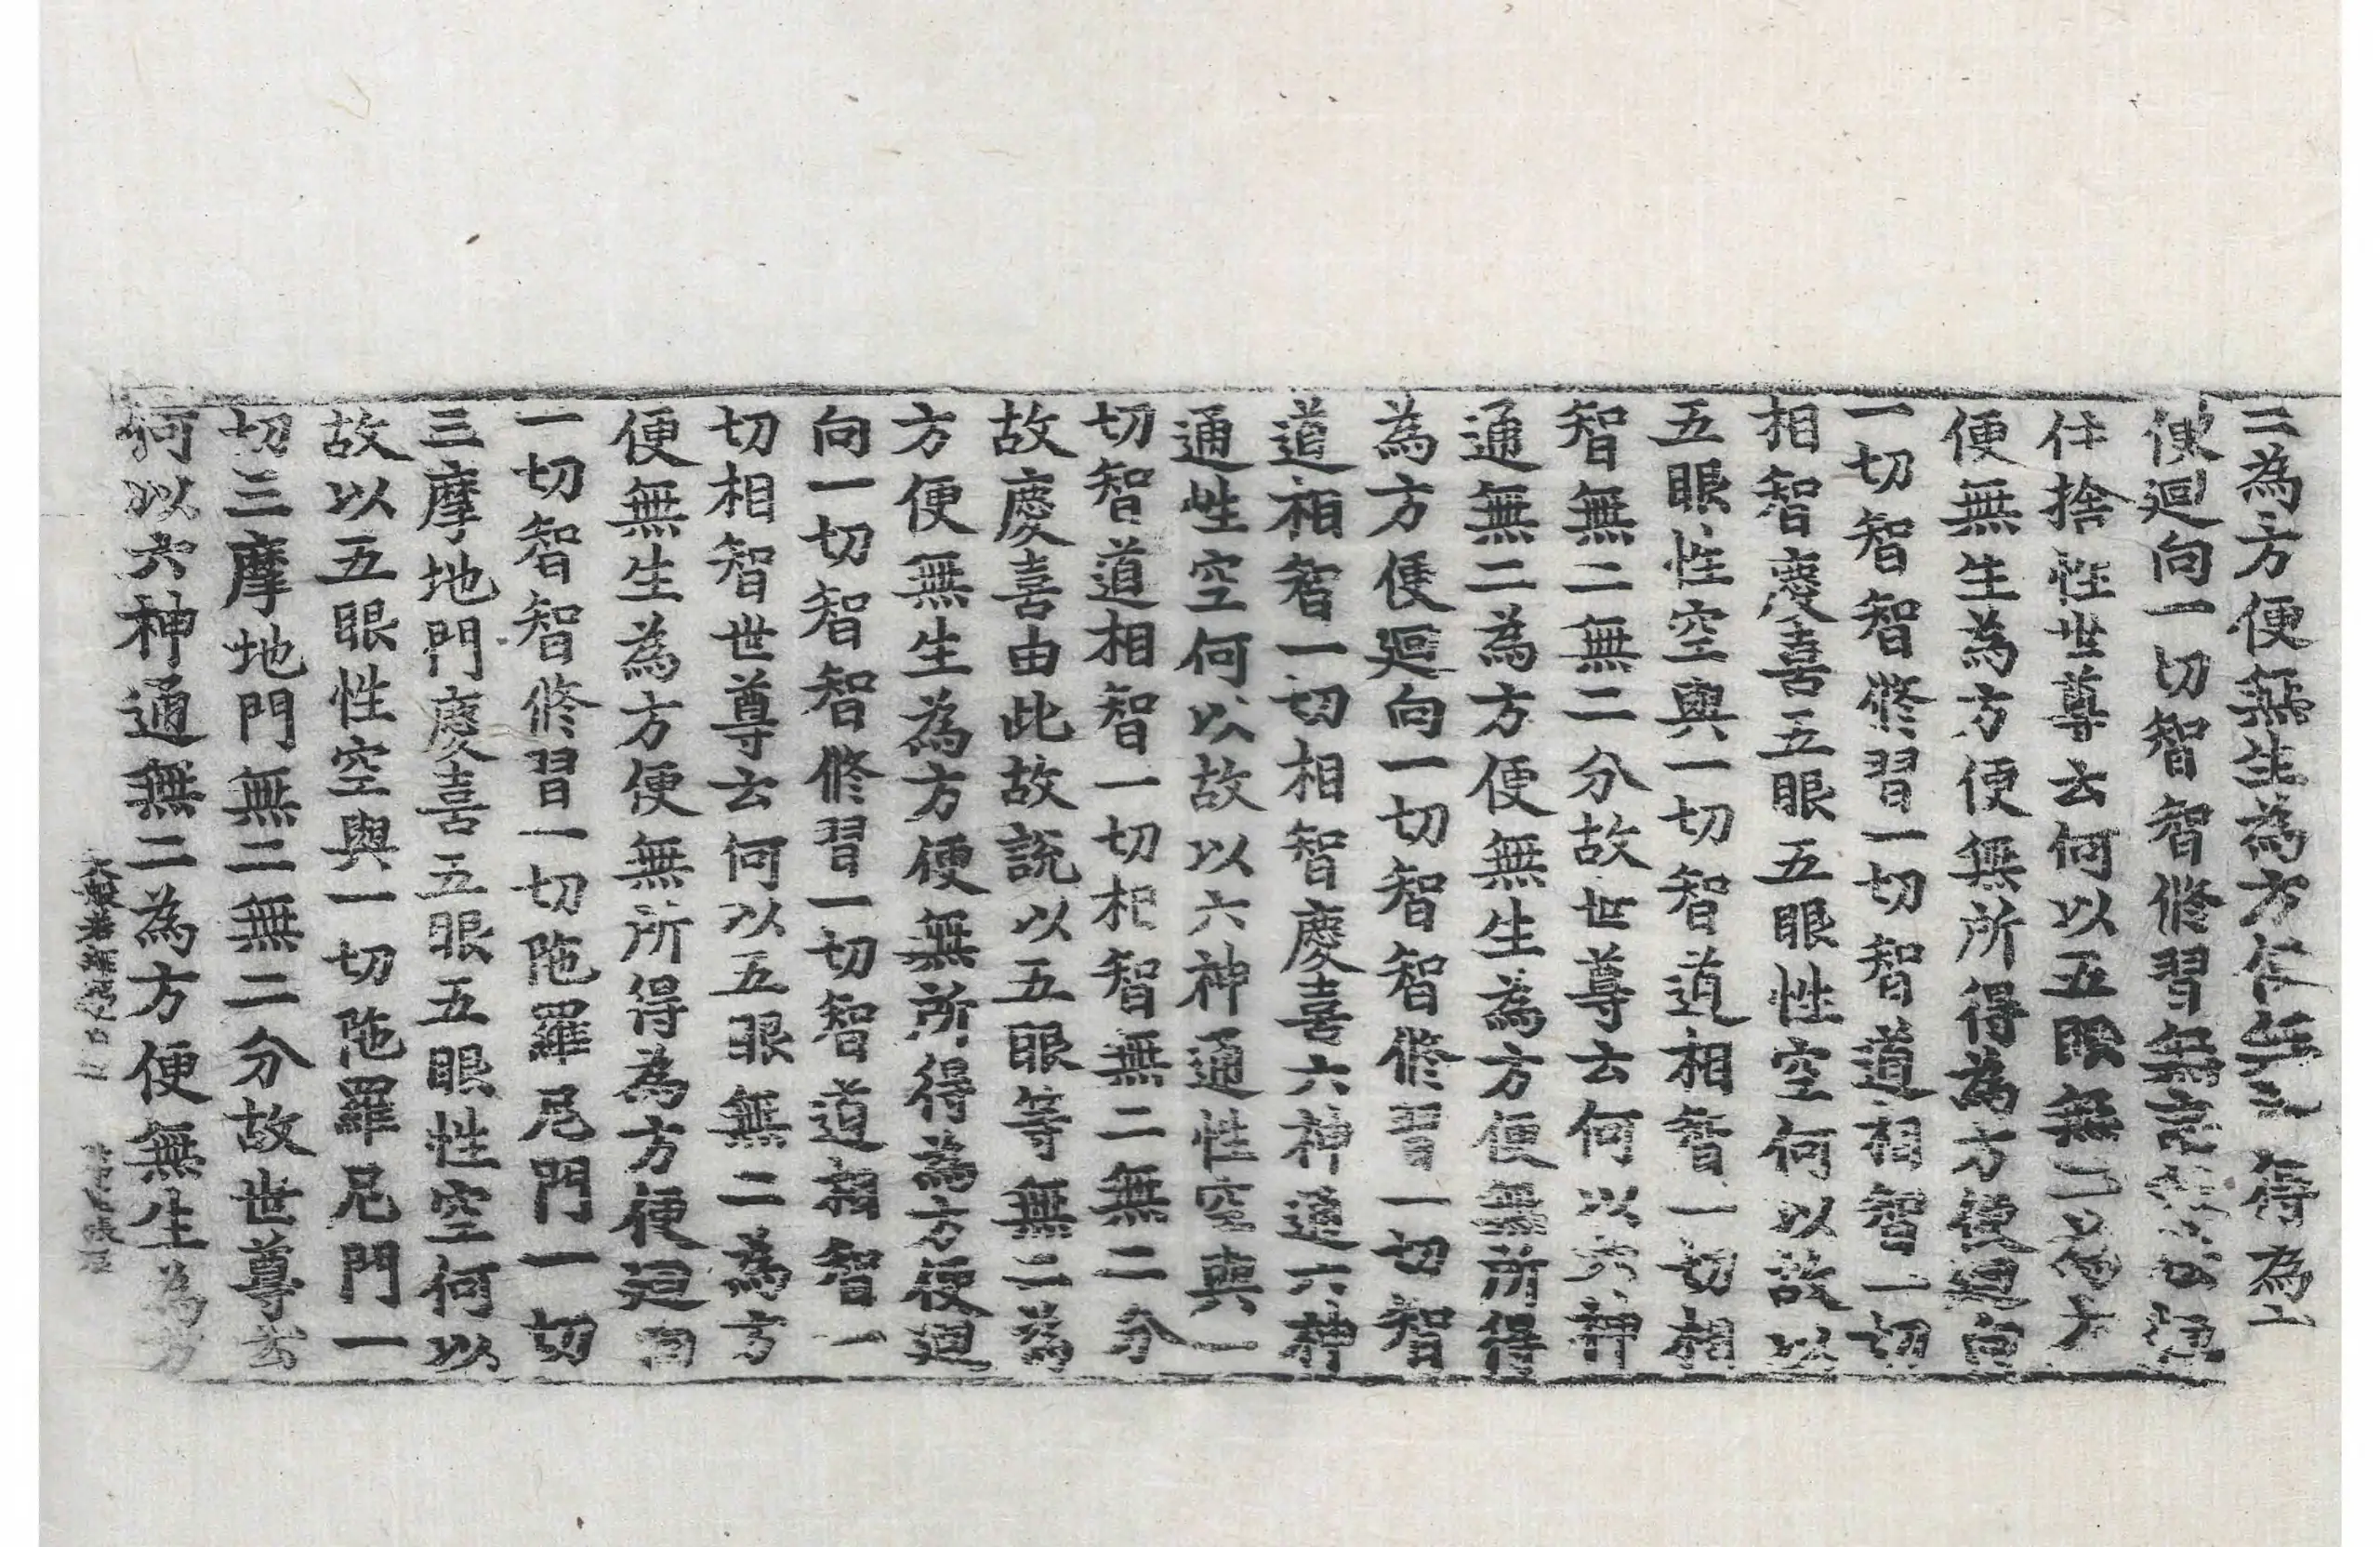 二為方便無生為方便無 得為
便迴向一切智智修習無忘失法恒
住捨性世尊云何以五眼無二為方
便無生為方便無所得為方便迴向
一切智智修習一切智道相智一切
相智慶喜五眼五眼性空何以故以
五眼性空與一切智道相智一切相
智無二無二分故世尊云何以六神
通無二為方便無生為方便無所得
為方便迴向一切智智修習一切智
道相智一切相智慶喜六神通六神
通性空何以故以六神通性空與一
切智道相智一切相智無二無二分
故慶喜由此故說以五眼等無二為
方便無生為方便無所得為方便迴
向一切智智修習一切智道相智一
切相智世尊云何以五眼無二為方
便無生為方便無所得為方便迴向
一切智智修習一切陁羅尼門一切
三摩地門慶喜五眼五眼性空何以
故以五眼性空與一切陁羅尼門一
切三摩地門無二無二分故世尊云
何以六神通無二為方便無生為方
大般若